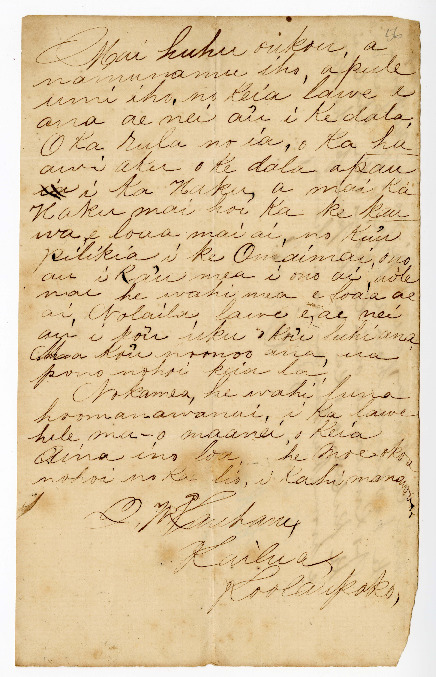 Mai huhu oukou, a
namunamu iho, a pule
umi iho, no keia lawe e
ana ae nei au i ke dala,
O ka rula no ia, o ka ha
awi aku o ke dala apau
i ka Haku, a mai ka
Haku mai hoi ka ke kau
wa e loaa mai ai, no ku'u
pilikia i ke Omaimai, ono
au i ka'u mea i ono ai, aole
nae he wahi mea e loaa ae
ai, Nolaila, lawe e ae nei
au i po'u uku o ko'u luhi ana
ma ko'u noonoo ana, ua
pono nohoi keia la.
No kamea, he wahi luna
hoomanawanui, i ka lawe-
hele, mu-o maanei, o keia
Aina ino loa he moe-oko-a
nohoi no ka lio, i kahi manawa
Kailua,
Koolaupoko,